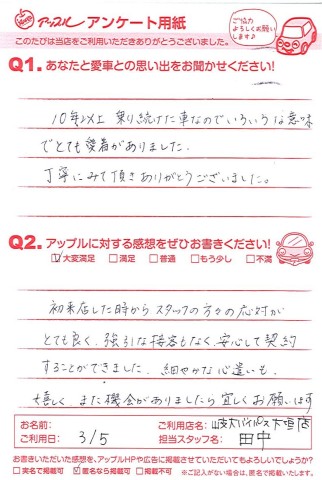 アップル アンケート用紙
このたびは当店をご利用いただきありがとうございました。
ご協力
よろしくお願い
します♪
Q1. あなたと愛車との思い出をお聞かせください!
10年以上 乗り続けた車なのでいろいろな意味
でとても愛着がありました。
丁寧にみて頂きありがとうございました。
Q2. アップルに対する感想をぜひお書きください!
☑大変満足 □満足 □普通 □もう少し □不満
初来店した時からスタッフの方々の応対が
とても良く、強引な接客もなく、安心して契約
することができました。細やかな心遣いも、
嬉しく、また機会がありましたら宜しくお願います
お名前: ご利用店名: 岐大バイパス大垣店
ご利用日: 3/5 担当スタッフ名: 田中
お書きいただいた感想を、アップルHPや広告に掲載させていただいてもよろしいでしょうか?
□実名で掲載可 ☑匿名なら掲載可 □掲載不可 ※ご記入がない場合は、匿名で掲載いたします。